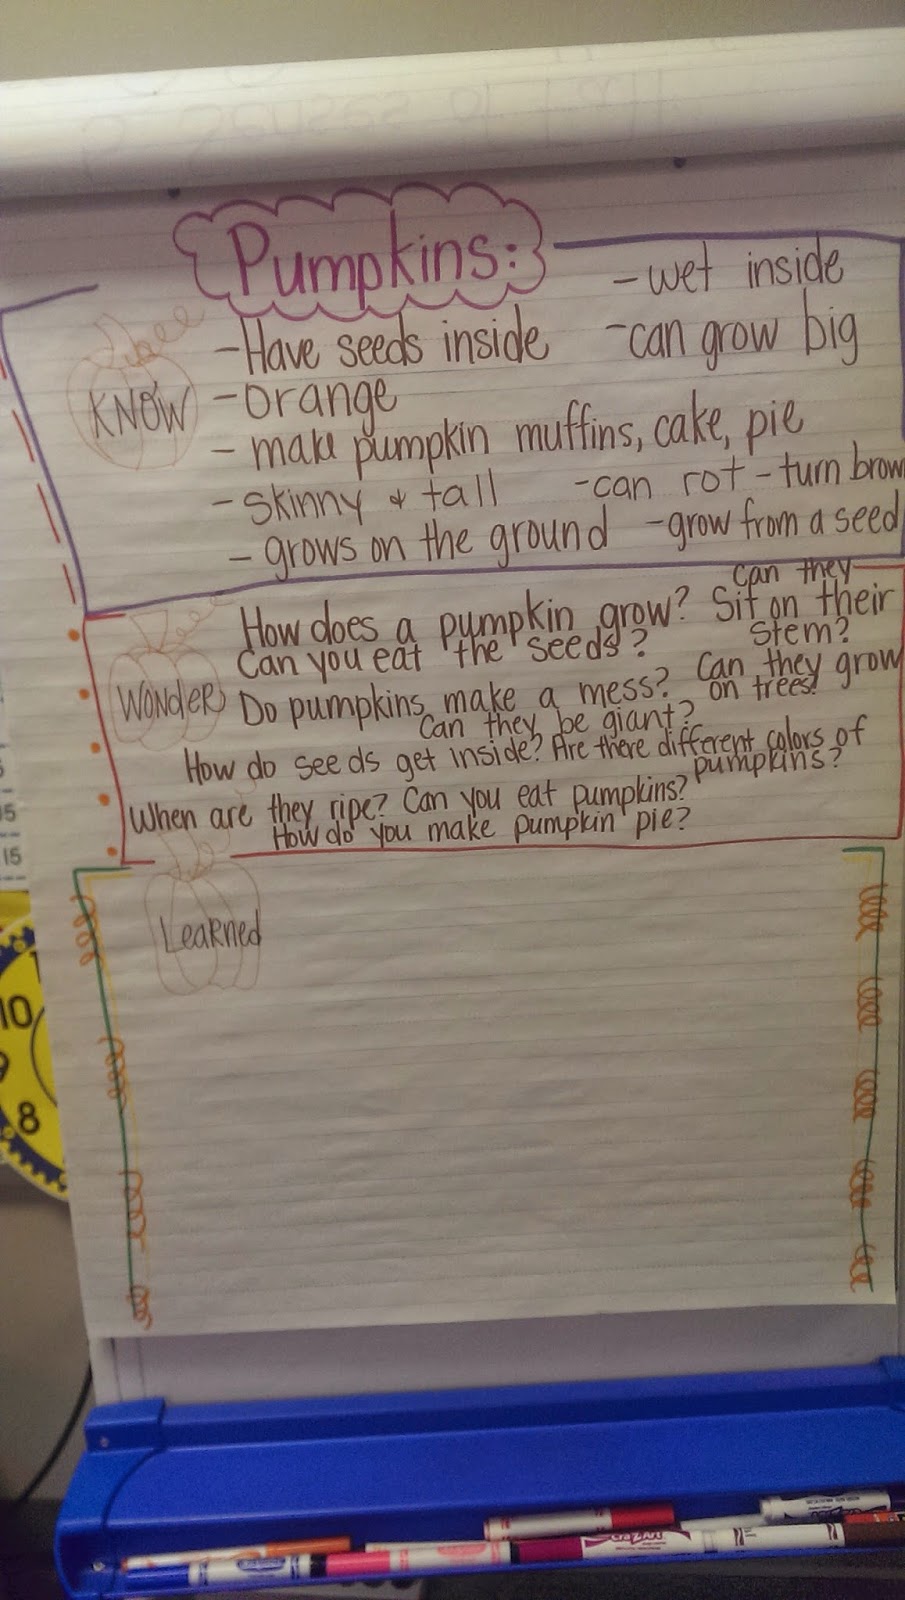 5 Senses of Fall
Pumpkins:
- wet inside
- Have seeds inside - can grow big
KNOW - orange
- make pumpkin muffins, cake, pie
- skinny & tall - can rot - turn brown
- grows on the ground - grow from a seed
Wonder
How does a pumpkin grow? Can they Sit on their stem?
Can you eat the seeds?
Do pumpkins make a mess? Can they grow on trees?
Can they be giant?
How do seeds get inside? Are there different colors of pumpkins?
When are they ripe? Can you eat pumpkins?
How do you make pumpkin pie?
Learned
5
15
15
10
9
8